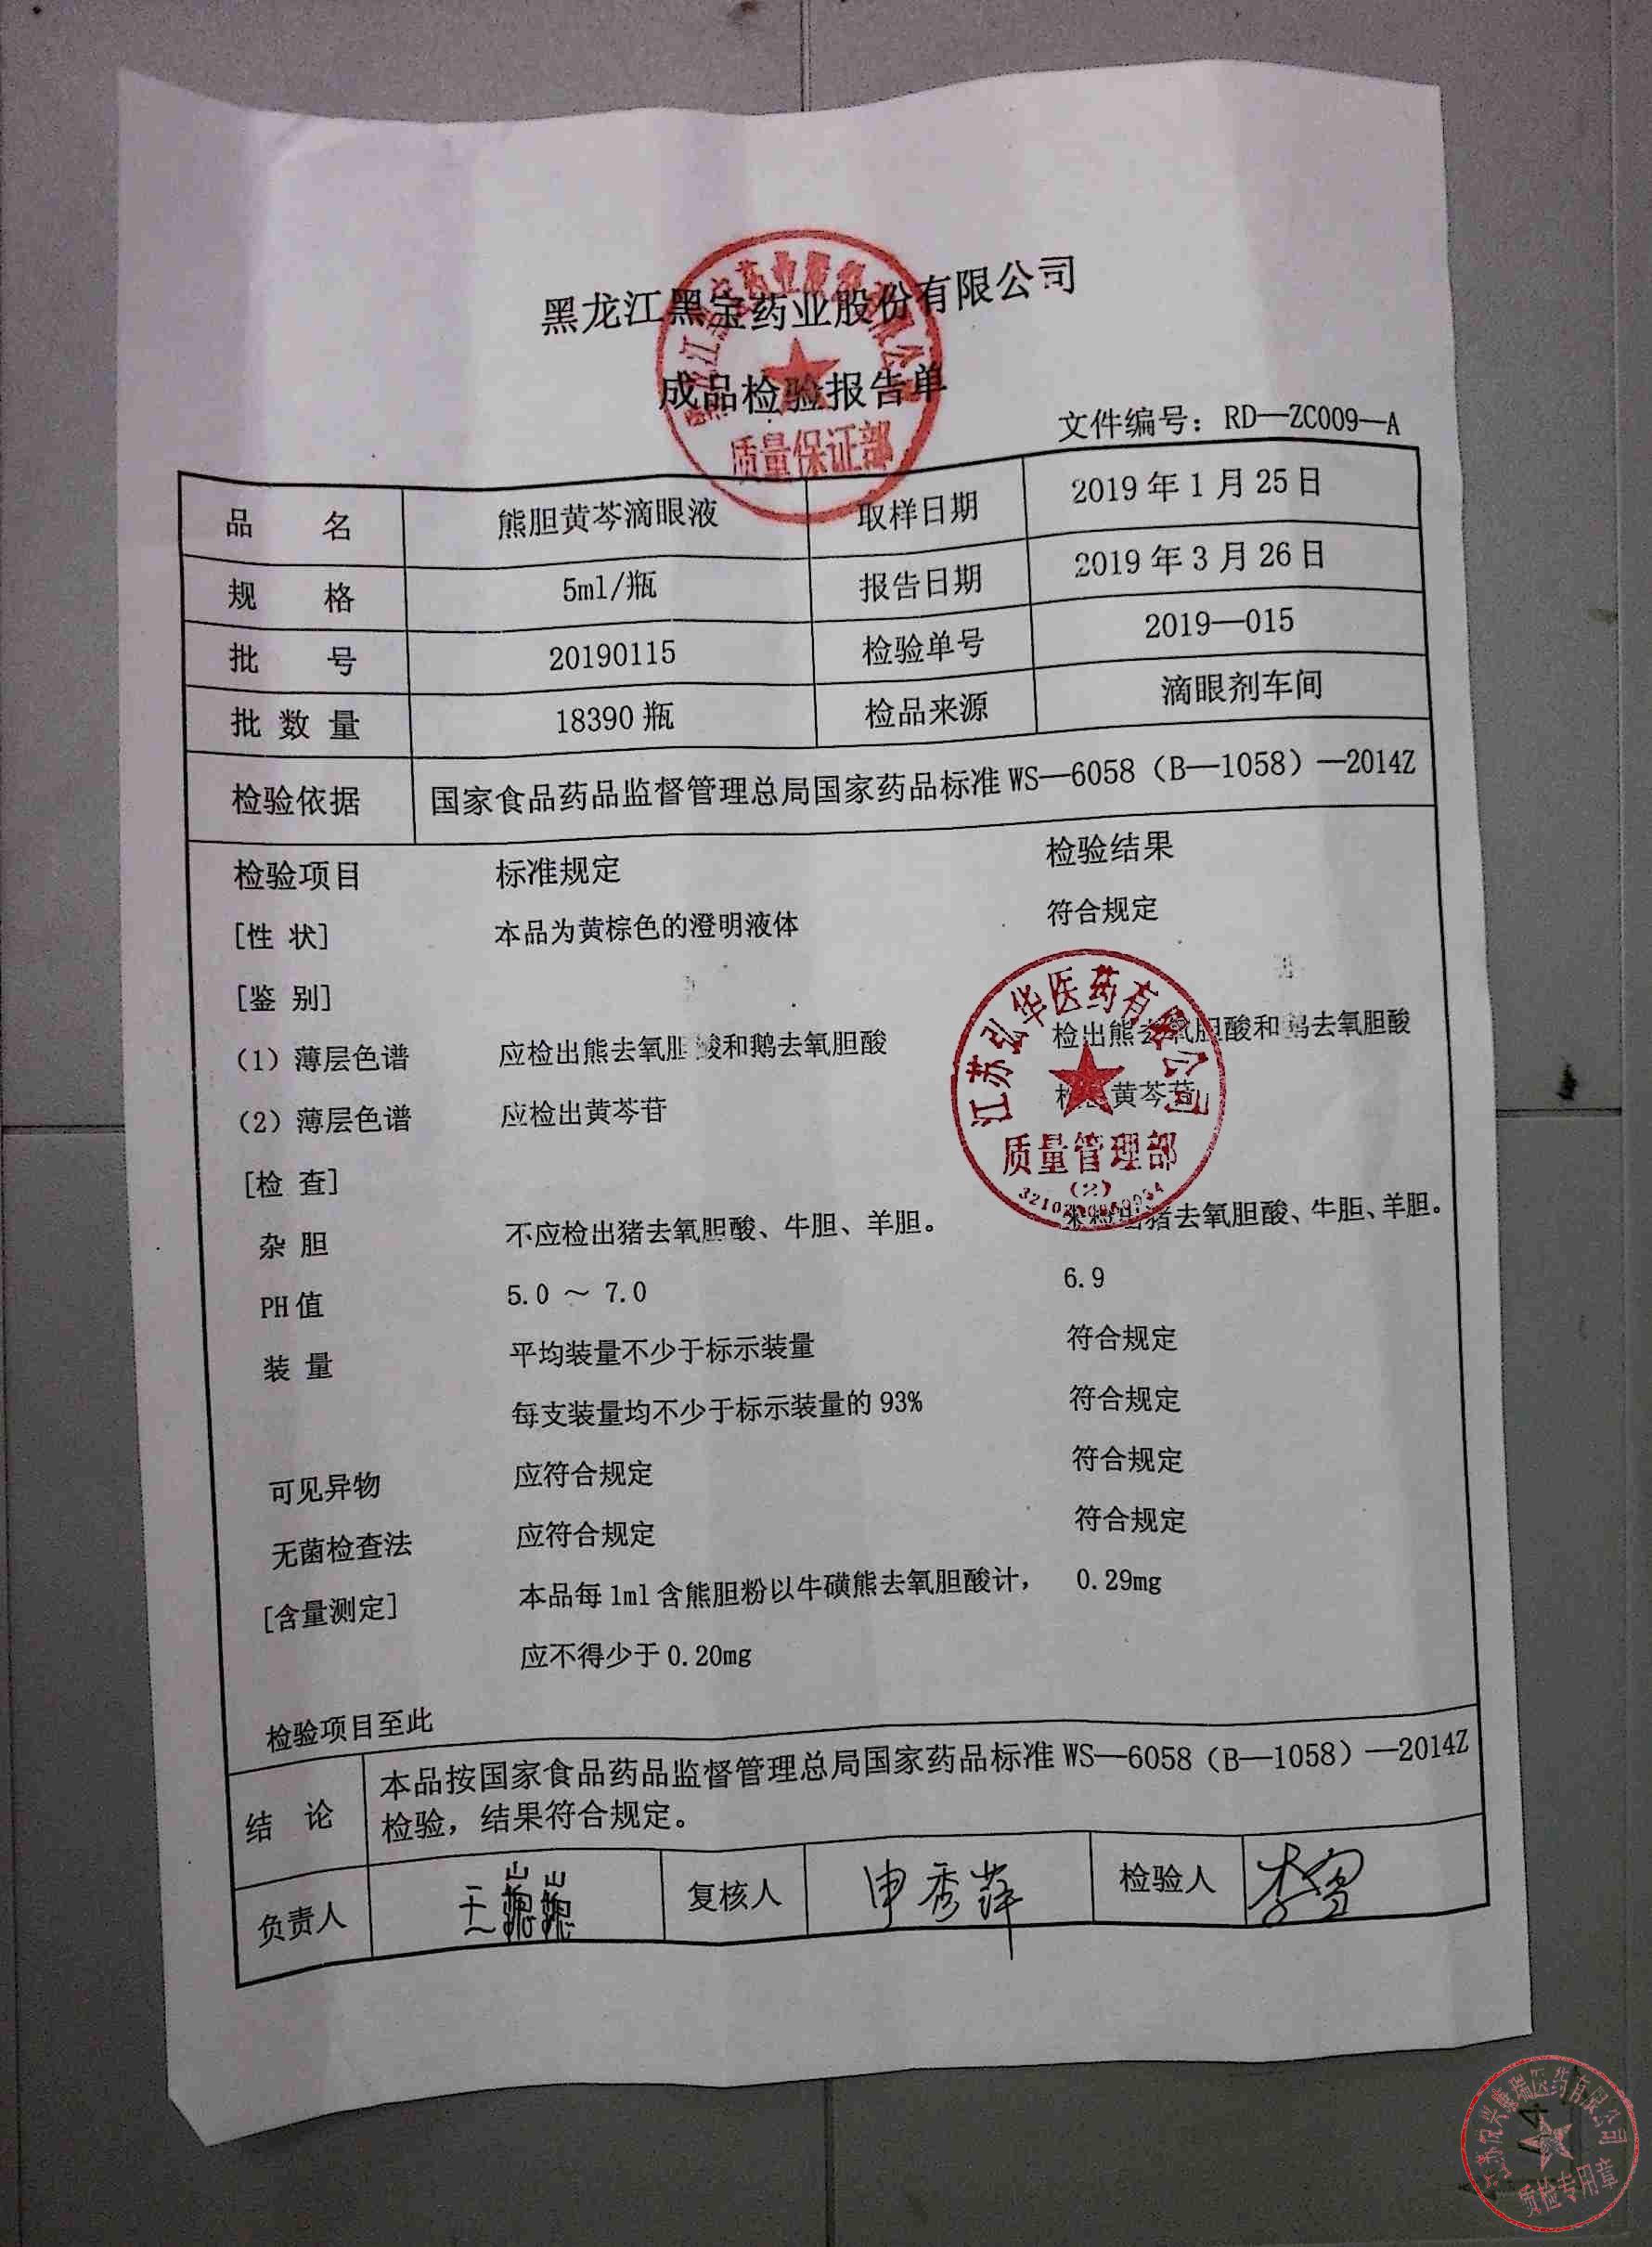 黑龙江黑宝药业股份有限公司
成品检验报告单
质量保证部
文件编号：RD—ZC009—A
品 名 熊胆黄芩滴眼液 取样日期 2019年1月25日
规 格 5ml/瓶 报告日期 2019年3月26日
批 号 20190115 检验单号 2019—015
批 数 量 18390瓶 检品来源 滴眼剂车间
检验依据 国家食品药品监督管理总局国家药品标准WS—6058（B—1058）—2014Z
检验项目 标准规定 检验结果
[性 状] 本品为黄棕色的澄明液体 符合规定
[鉴 别]
（1）薄层色谱 应检出熊去氧胆酸和鹅去氧胆酸 检出熊去氧胆酸和鹅去氧胆酸
（2）薄层色谱 应检出黄芩苷 检出黄芩苷
江苏弘华医药有限公司
质量管理部
（2）
[检 查]
杂 胆 不应检出猪去氧胆酸、牛胆、羊胆。 未检出猪去氧胆酸、牛胆、羊胆。
PH值 5.0 ～ 7.0 6.9
装 量 平均装量不少于标示装量 符合规定
每支装量均不少于标示装量的93% 符合规定
可见异物 应符合规定 符合规定
无菌检查法 应符合规定 符合规定
[含量测定] 本品每1ml含熊胆粉以牛磺熊去氧胆酸计， 0.29mg
应不得少于0.20mg
检验项目至此
结 论 本品按国家食品药品监督管理总局国家药品标准WS—6058（B—1058）—2014Z
检验，结果符合规定。
负责人 王巍巍 复核人 申秀萍 检验人
质检专用章